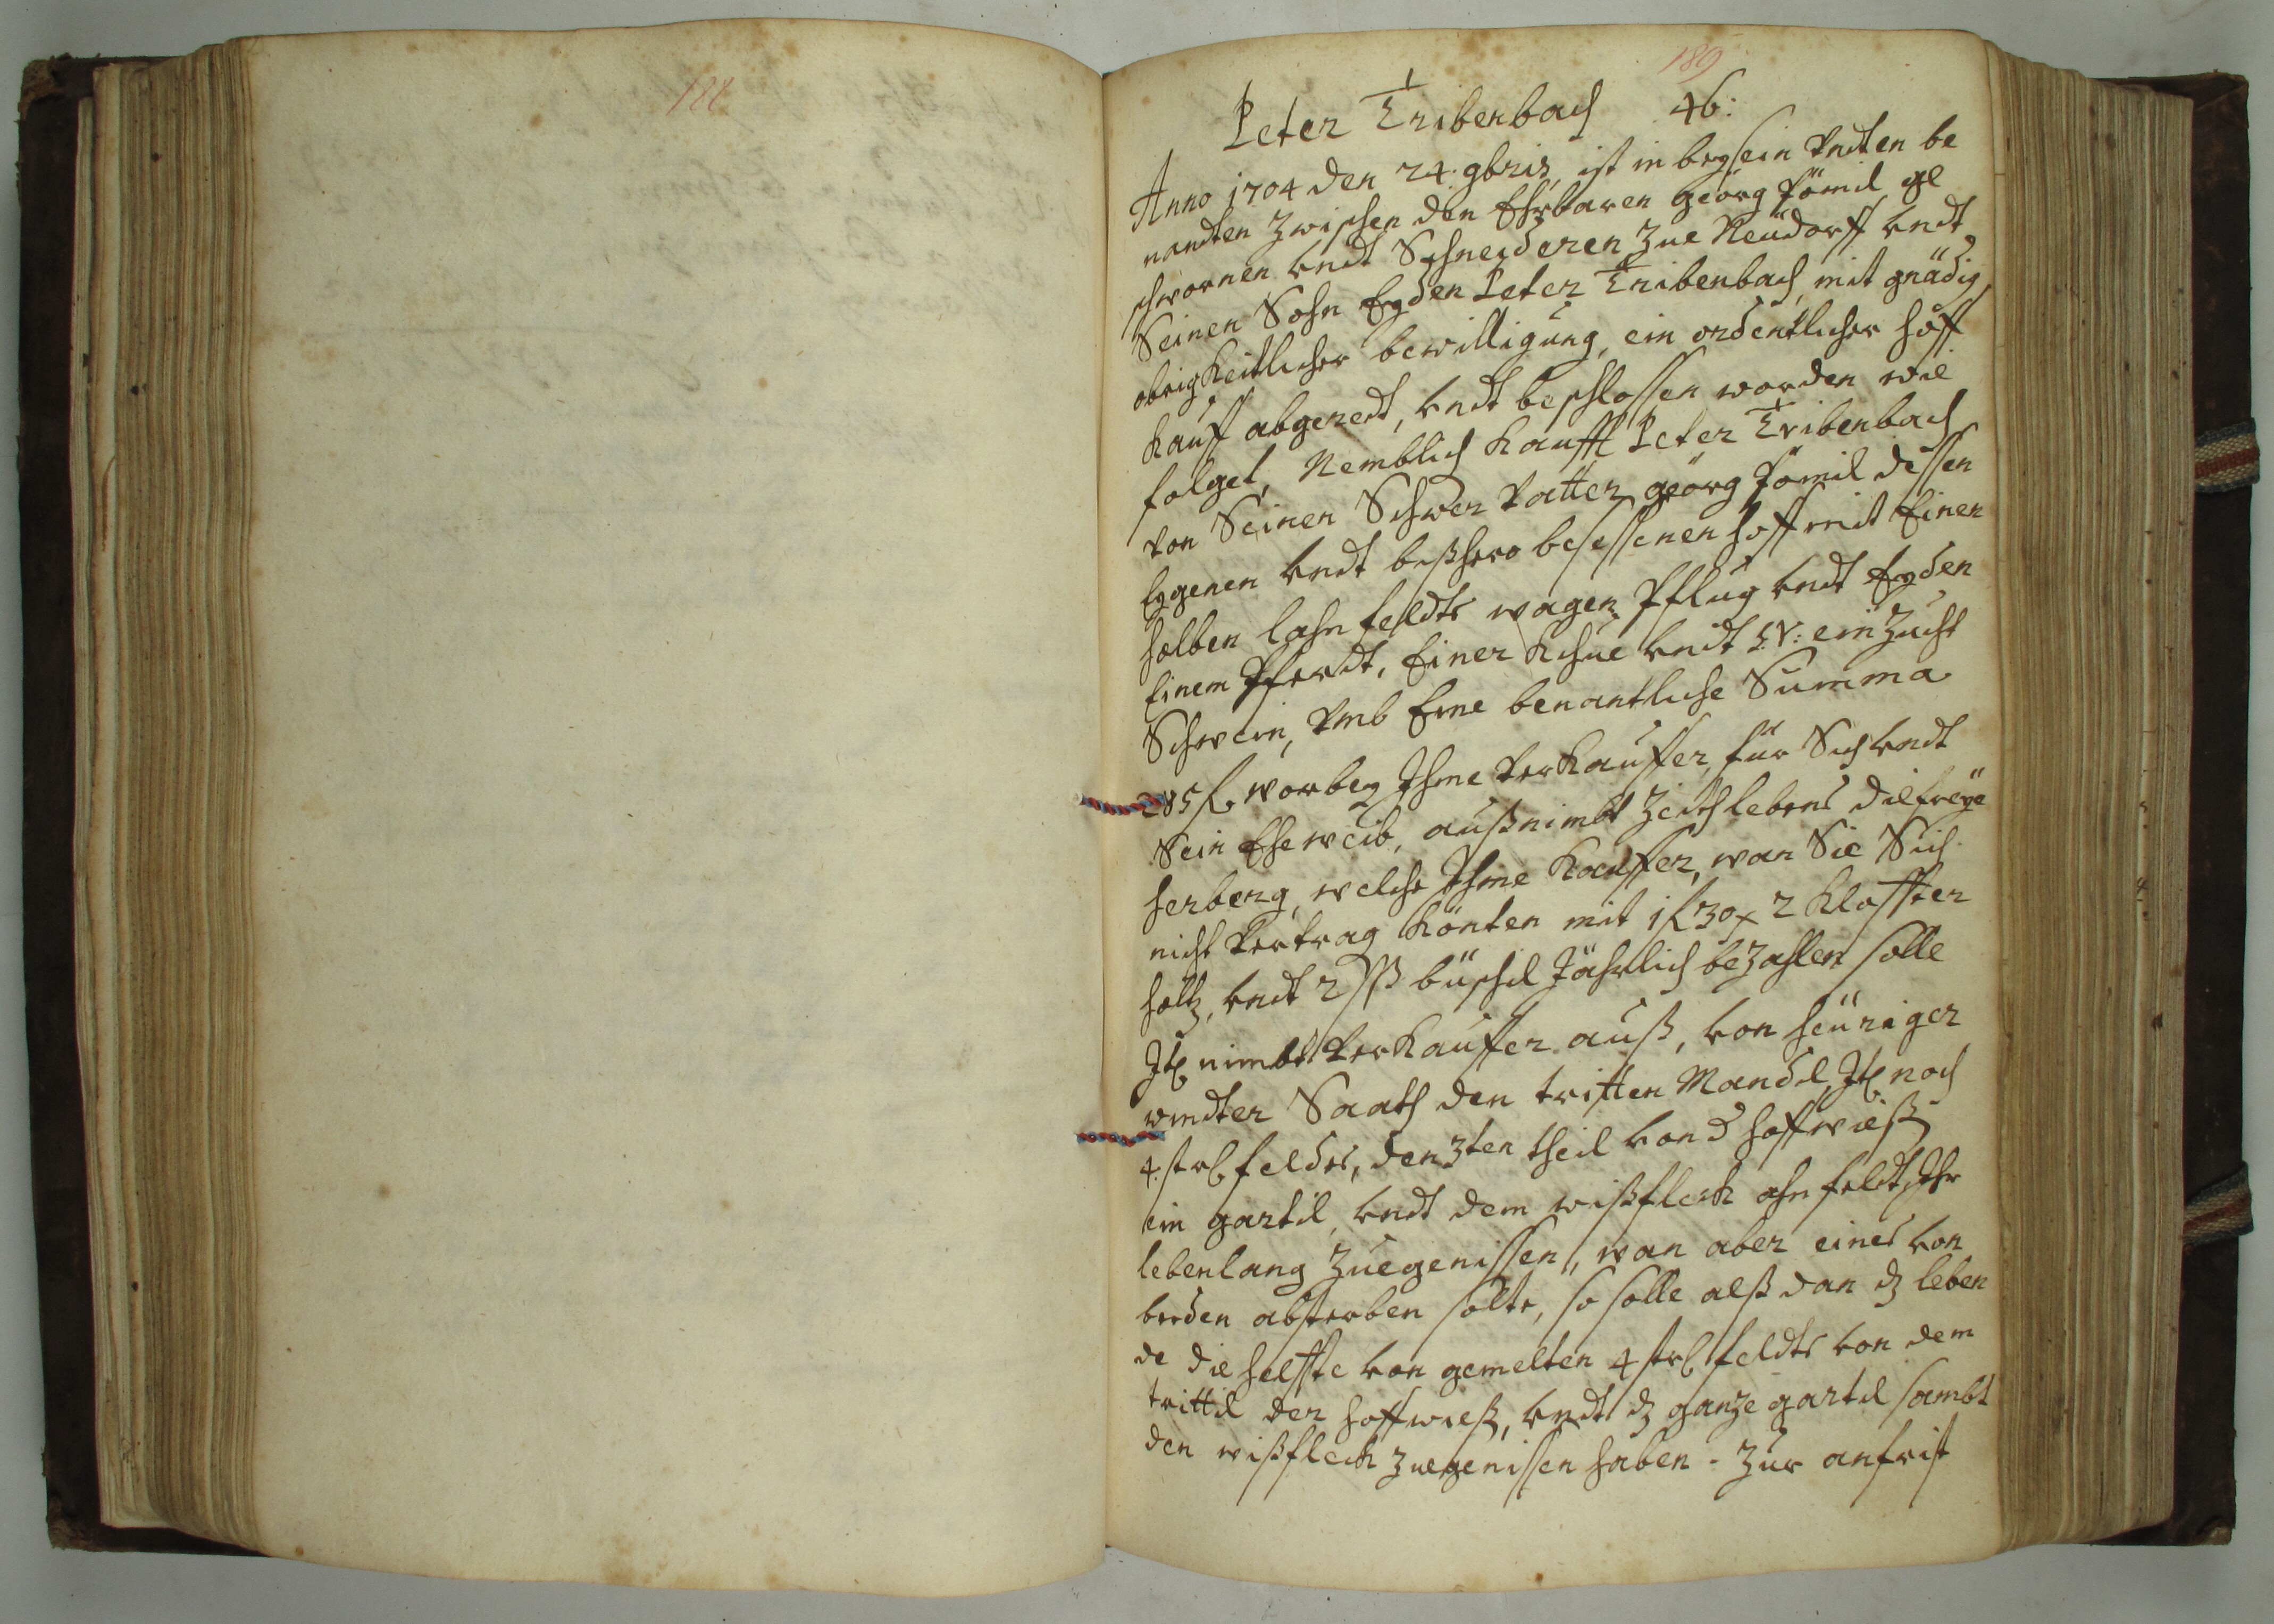 188
189
Peter Tribenbach 46:
Anno 1704 den 24. 9bris, ist in beysein Endten be
nandten zwischen den Ehrbaren Georg Pömil ge
schwornen undt Schneideren zue Neudorff undt
Seinen Sohn Eyden Peter Tribenbach, mit gnädig
obrigkeitlicher bewilligung, ein ordentlicher hoff
kauff abgeredt, undt beschlossen worden wie
folget, Nemblich kaufft Peter Tribenbach
von Seinen Schwer Vatter georg Pömil dessen
Eygenen undt bißhero besessenen hoff mit Einen
halben lahn feldts wagen, Pflug undt Eyden
Einem Pferdt, Einer Khue undt S.V: ein Zucht
Schwein, Vmb Eine benantliche Summa
285 f. worbey Ihme Verkauffer, für Sich undt
Sein Eheweib, außnimbt Zeith lebens die freye
herberg, welche Ihme kauffer, wan Sie Sich
nicht Vertrag könten mit 1 f 30 x 2 klaffter
holtz, undt 2 ß büschel Jährlich bezahlen solle
Itẽ nimbt Verkauffer auß, von heüriger
windter Saath den tritten Mandel, Itẽ noch
4. str felds, den 3ten theil von d hoffwieß
ein gartel, undt dem wißfleckh ahn feldt, Ihr
lebenlang zuegenissen, wan aber eines von
beeden absterben solte, so solle alß dan dz leben
de die helffte von gemelten 4 str feldts von dem
trittel der hoffwieß, undt dz ganze gartel sambt
den wißfleckh zuegenissen haben. Zur anfrist